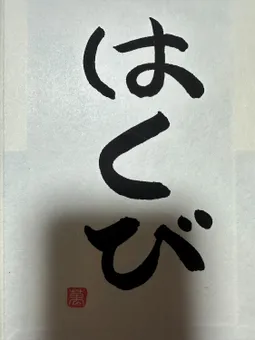 はくび